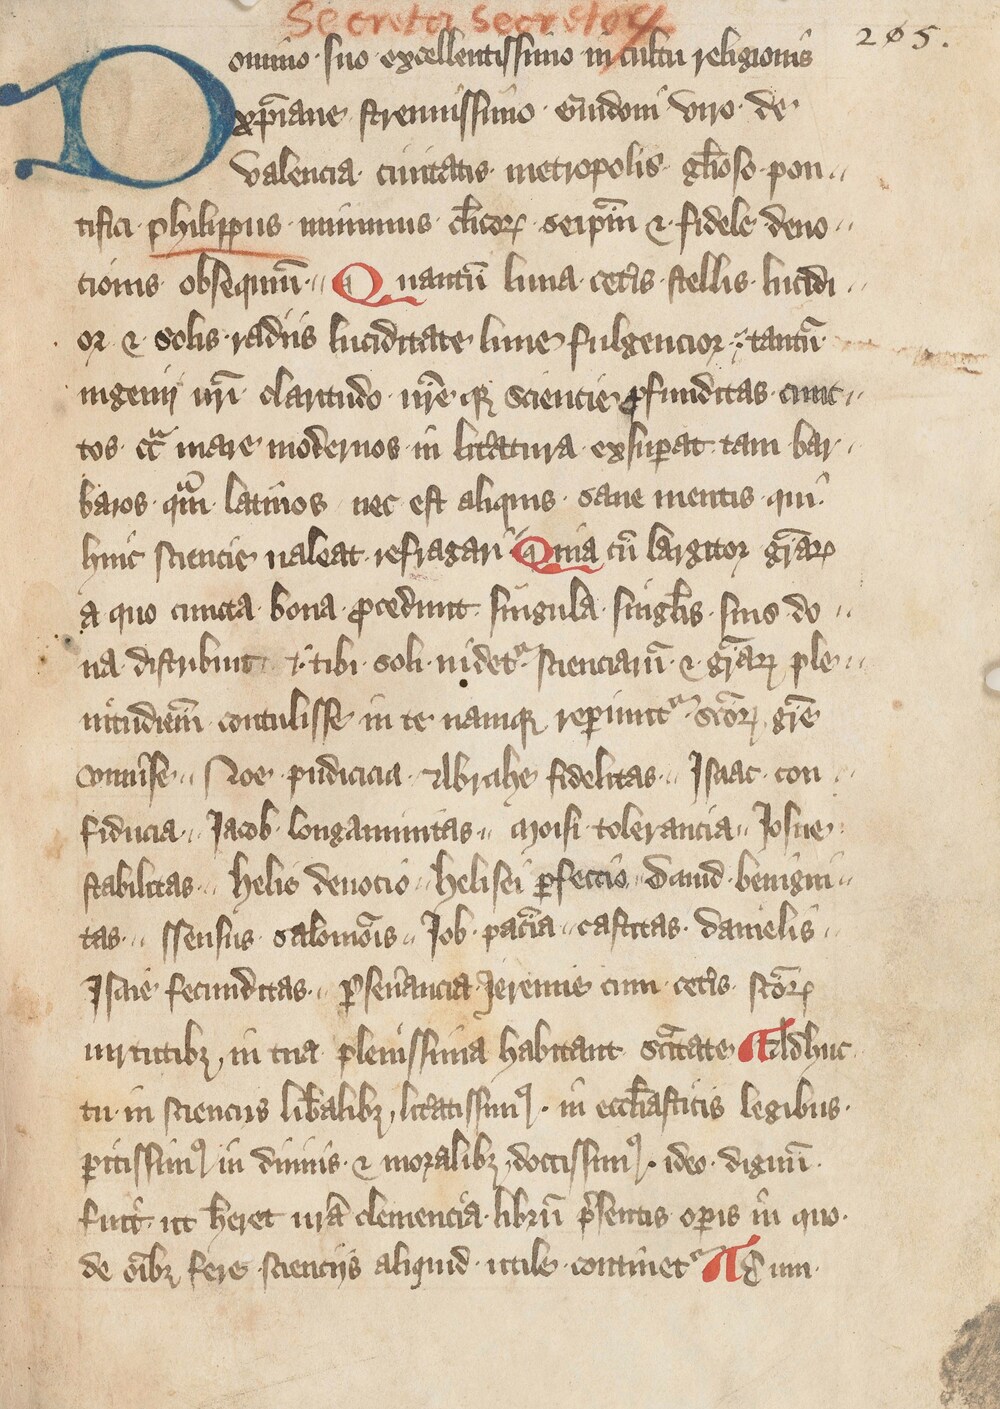 Secreta secretoꝝ
205.
Domino · suo · excellentissimo in cultu religionis
xp̄iane strenuissimo · Guidoni viro · de ·
valencia · ciuitatis · metropolis · gl̄ioso · pon
tifici · philippus · minimus · cl̄icoꝝ · seip̄m ⁊ · fidele deuo
cionis · obsequiū · Quantū luna · cetis · stellis · lucidi
or · ⁊ · solis · radiis luciditate lune fulgencior · tantū
ingenij vrī claritudo · vrē qꝫ sciencie ꝓfunditas · cunc
tos · mare modernos · in litatura · exsuꝑat · tam bar
baros · qm̄ · latinos nec est aliquis · sane mentis · qui
huic sciencie ualeat · refragari · Quia cū largitor gr̄aꝝ
a quo cuncta · bona · ꝓcedunt · singula · singlis · suis do
na · distribuit · tibi · soli · uidet᷑ · scienciaꝝ · ⁊ · gr̄aꝝ ple
nitudiem̄ · contulisse in te namqꝫ reꝑiunt᷑ · sc̄oꝝ gr̄e
Noe · pudicicia · Abrahe fidelitas · Isaac · con
fiducia · Jacob · longanimitas · Moisi · tolerancia · Josue
stabilitas · helie deuocio · helisei ꝑfeccio · Dauid · benigni
tas · ssensus · salomōis · Job · pac̄ia · castitas · danielis
Isaie fecunditas · ꝑseuāncia · Jeremie cum · cetis · sc̄oꝝ
uirtutibꝫ, in tua plenissima habitant sc̄itate Adhuc
tu · in sciencijs lib̄alibꝫ, litatissimꝰ · in eccl̄iasticis legibus ·
ꝑitissimꝰ in diuinis · ⁊ moralibꝫ, doctissimꝰ · ideo · dignū ·
fuit · ut h̄eret · vrā clemencia · librū p̄sentis oꝑis in quo ·
de oībꝫ fere · sciencijs aliquid · utile · continet᷑ Cum ·